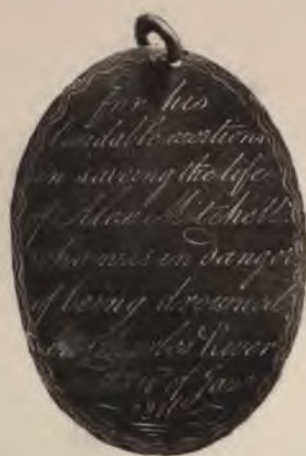 for his
laudable exertions
in saveing the life
of Alanc Mitchell
who was in danger
of being drowned
in River
of Jany